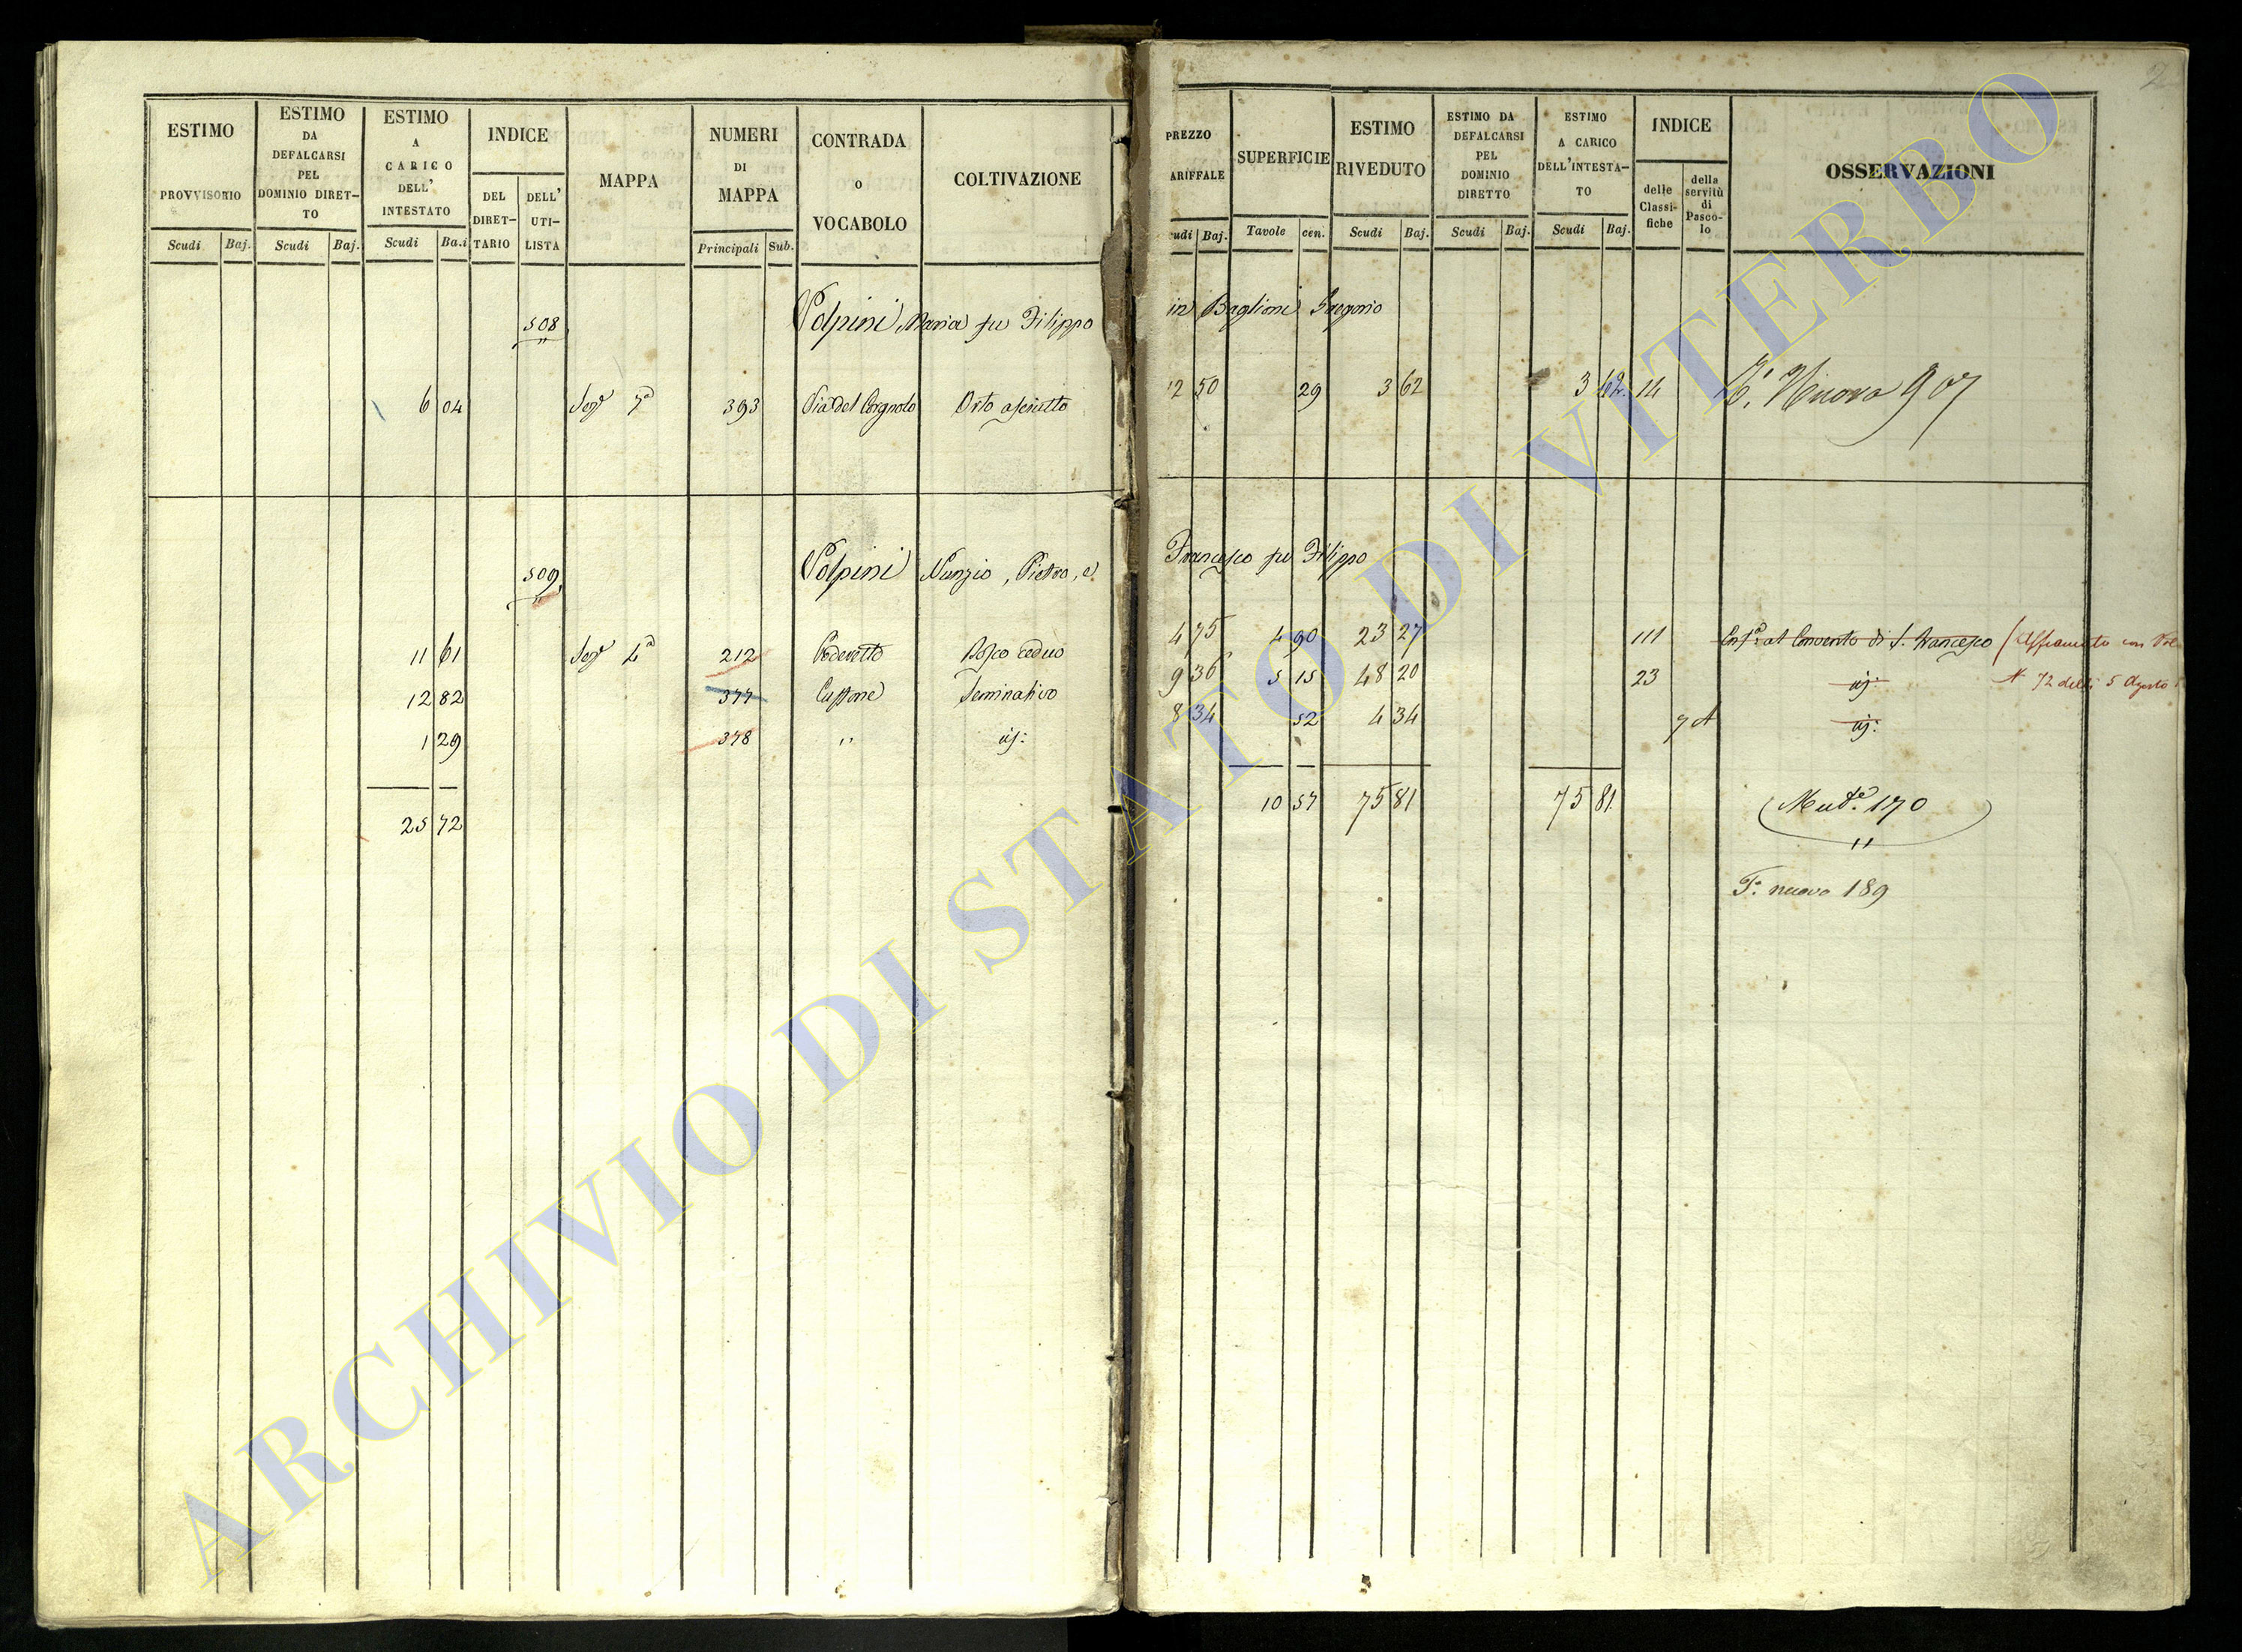 2
ESTIMO PROVVISORIO
Scudi Baj.
ESTIMO DA DEFALCARSI PEL DOMINIO DIRET- TO
Scudi Baj.
ESTIMO A CARICO DELL' INTESTATO
Scudi Ba.i
INDICE
DEL DIRET- TARIO
DELL' UTI- LISTA
MAPPA
NUMERI DI MAPPA
Principali Sub.
CONTRADA o VOCABOLO
COLTIVAZIONE
PREZZO ARIFFALE
udi Baj.
SUPERFICIE
Tavole cen.
ESTIMO RIVEDUTO
Scudi Baj.
ESTIMO DA DEFALCARSI PEL DOMINIO DIRETTO
Scudi Baj.
ESTIMO A CARICO DELL'INTESTA- TO
Scudi Baj.
INDICE
delle Classi- fiche
della servitù di Pasco- lo
OSSERVAZIONI
508 Volpini Maria fu Filippo in Baglioni Gregorio
6 04 Sez.e 7a 393 Via del Corgnolo Orto asciutto 12 50 29 3 62 3 62. 14 Nuova 907
509 Volpini Nunzio, Pietro, e Francesco fu Filippo
11 61 Sez.e 4a 212 Poderetto Bosco ceduo 4 75 4 90 23 27 111 Enf.a al Convento di S. Francesco (Affrancato con
12 82 377 Seminativo 9 36 5 15 48 20 23 72 delli 5 Agosto
1 29 378 " 8 34 52 4 34 7 A
25 72 10 57 75 81 75 81 Mut.e 170
"
T.o nuovo 189
ARCHIVIO DI STATO DI VITERBO